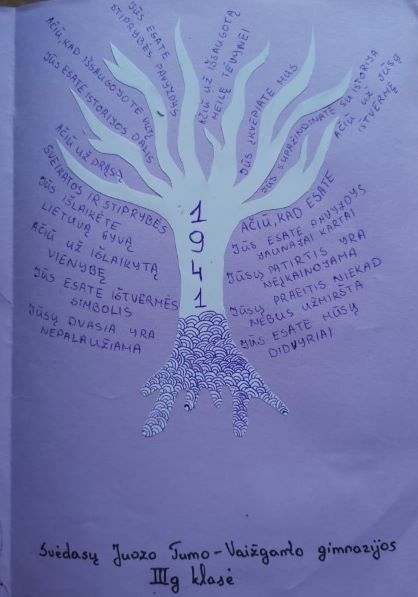 AČIŪ, KAD IŠSAUGOJOTE VILTĮ
JŪS ESATE
STIPRYBĖS PAVYZDYS
AČIŪ UŽ IŠSAUGOTĄ
MEILĘ TĖVYNEI
JŪS ĮKVEPIATE MUS
JŪS SUPAŽINDINATE SU ISTORIJA
AČIŪ UŽ JŪSŲ
IŠTVERMĘ
JŪS ESATE ISTORIJOS DALIS
AČIŪ UŽ DRĄSĄ
SVEIKATOS IR STIPRYBĖS
JŪS IŠLAIKĖTE
LIETUVĄ GYVĄ
AČIŪ UŽ IŠLAIKYTĄ
VIENYBĘ
JŪS ESATE IŠTVERMĖS
SIMBOLIS
JŪSŲ DVASIA YRA
NEPALAUŽIAMA
1
9
4
1
AČIŪ, KAD ESATE
JŪS ESATE PAVYZDYS
JAUNAJAI KARTAI
JŪSŲ PATIRTIS YRA
NEĮKAINOJAMA
JŪSŲ PRAEITIS NIEKAD
NEBUS UŽMIRŠTA
JŪS ESATE MŪSŲ
DIDVYRIAI
Svėdasų Juozo Tumo-Vaižganto gimnazijos
IIIg klasė